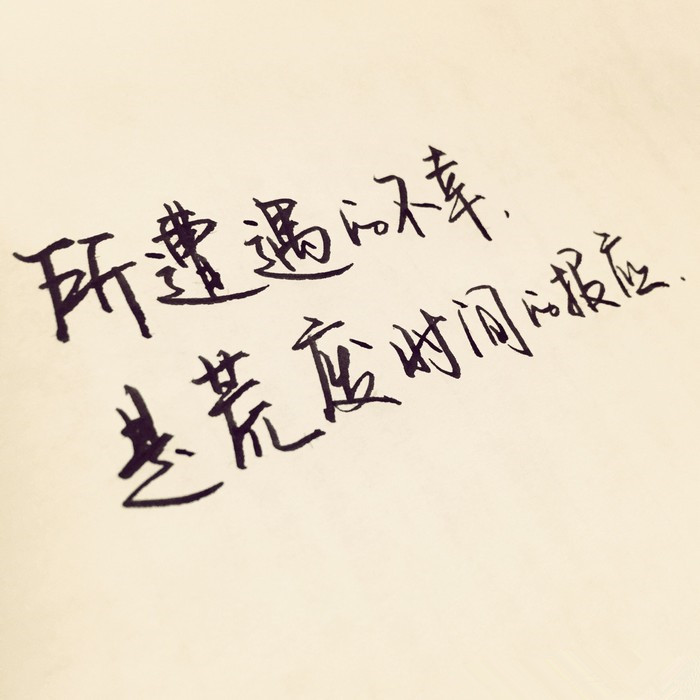 所遭遇的不幸.
是荒度时间的报应.